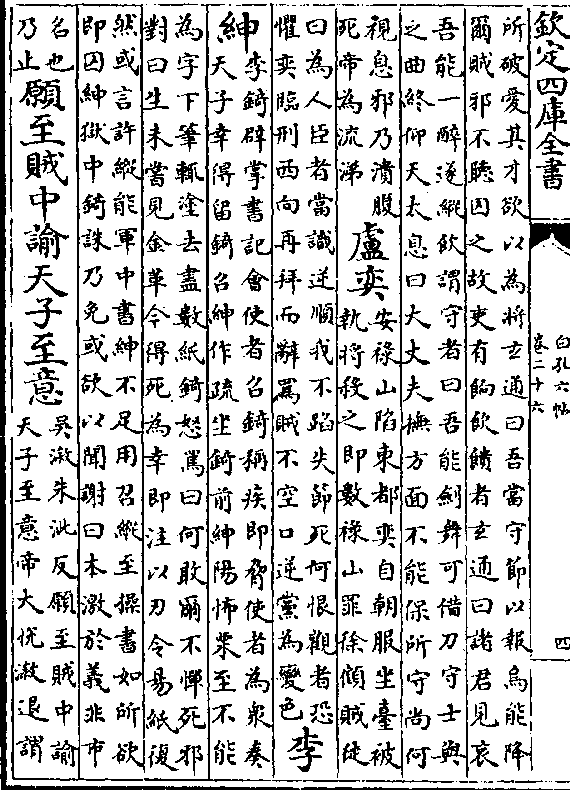 欽定四庫全書
白孔六帖
卷二十六
四
所破愛其才欲以為將玄通曰吾當守節以報烏能降
爾賊邪不聽囚之故吏有餉飲饋者玄通曰諸君見哀
吾能一醉遂縱飲謂守者曰吾能劍舞可借刀守士與
之曲終仰天太息曰大丈夫撫方面不能保所守尚何
視息邪乃潰腹
死帝為流涕
盧奕
安祿山陷東都奕自朝服坐臺被
執將殺之即數祿山罪徐傾賊徒
曰為人臣者當識逆順我不蹈失節死何恨觀者恐
懼奕臨刑西向再拜而辭罵賊不空口逆黨為變色
李
紳
李錡辟掌書記會使者召錡稱疾即脅使者為衆奏
天子幸得留錡召紳作疏坐錡前紳陽怖栗至不能
為字下筆輒塗去盡數紙錡怒罵曰何敢爾不憚死邪
對曰生未嘗見金革今得死為幸即注以刃令易紙復
然或言許縱能軍中書紳不足用召縱至操書如所欲
即囚紳獄中錡誅乃免或欲以聞謝曰本激於義非市
名也
乃止
願至賊中諭天子至意
吳漵朱泚反願至賊中諭
天子至意帝大悅漵退謂